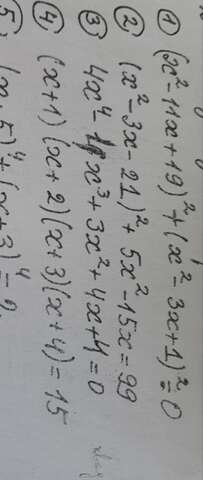 ① (x²-11x+19)²+(x²-3x+1)²=0
② (x²-3x-21)²+5x²-15x=99
③ 4x⁴- x³+3x²+4x+4=0
④ (x+1)(x+2)(x+3)(x+4)=15
⑤ (x 5)⁴+(x+3)⁴=2